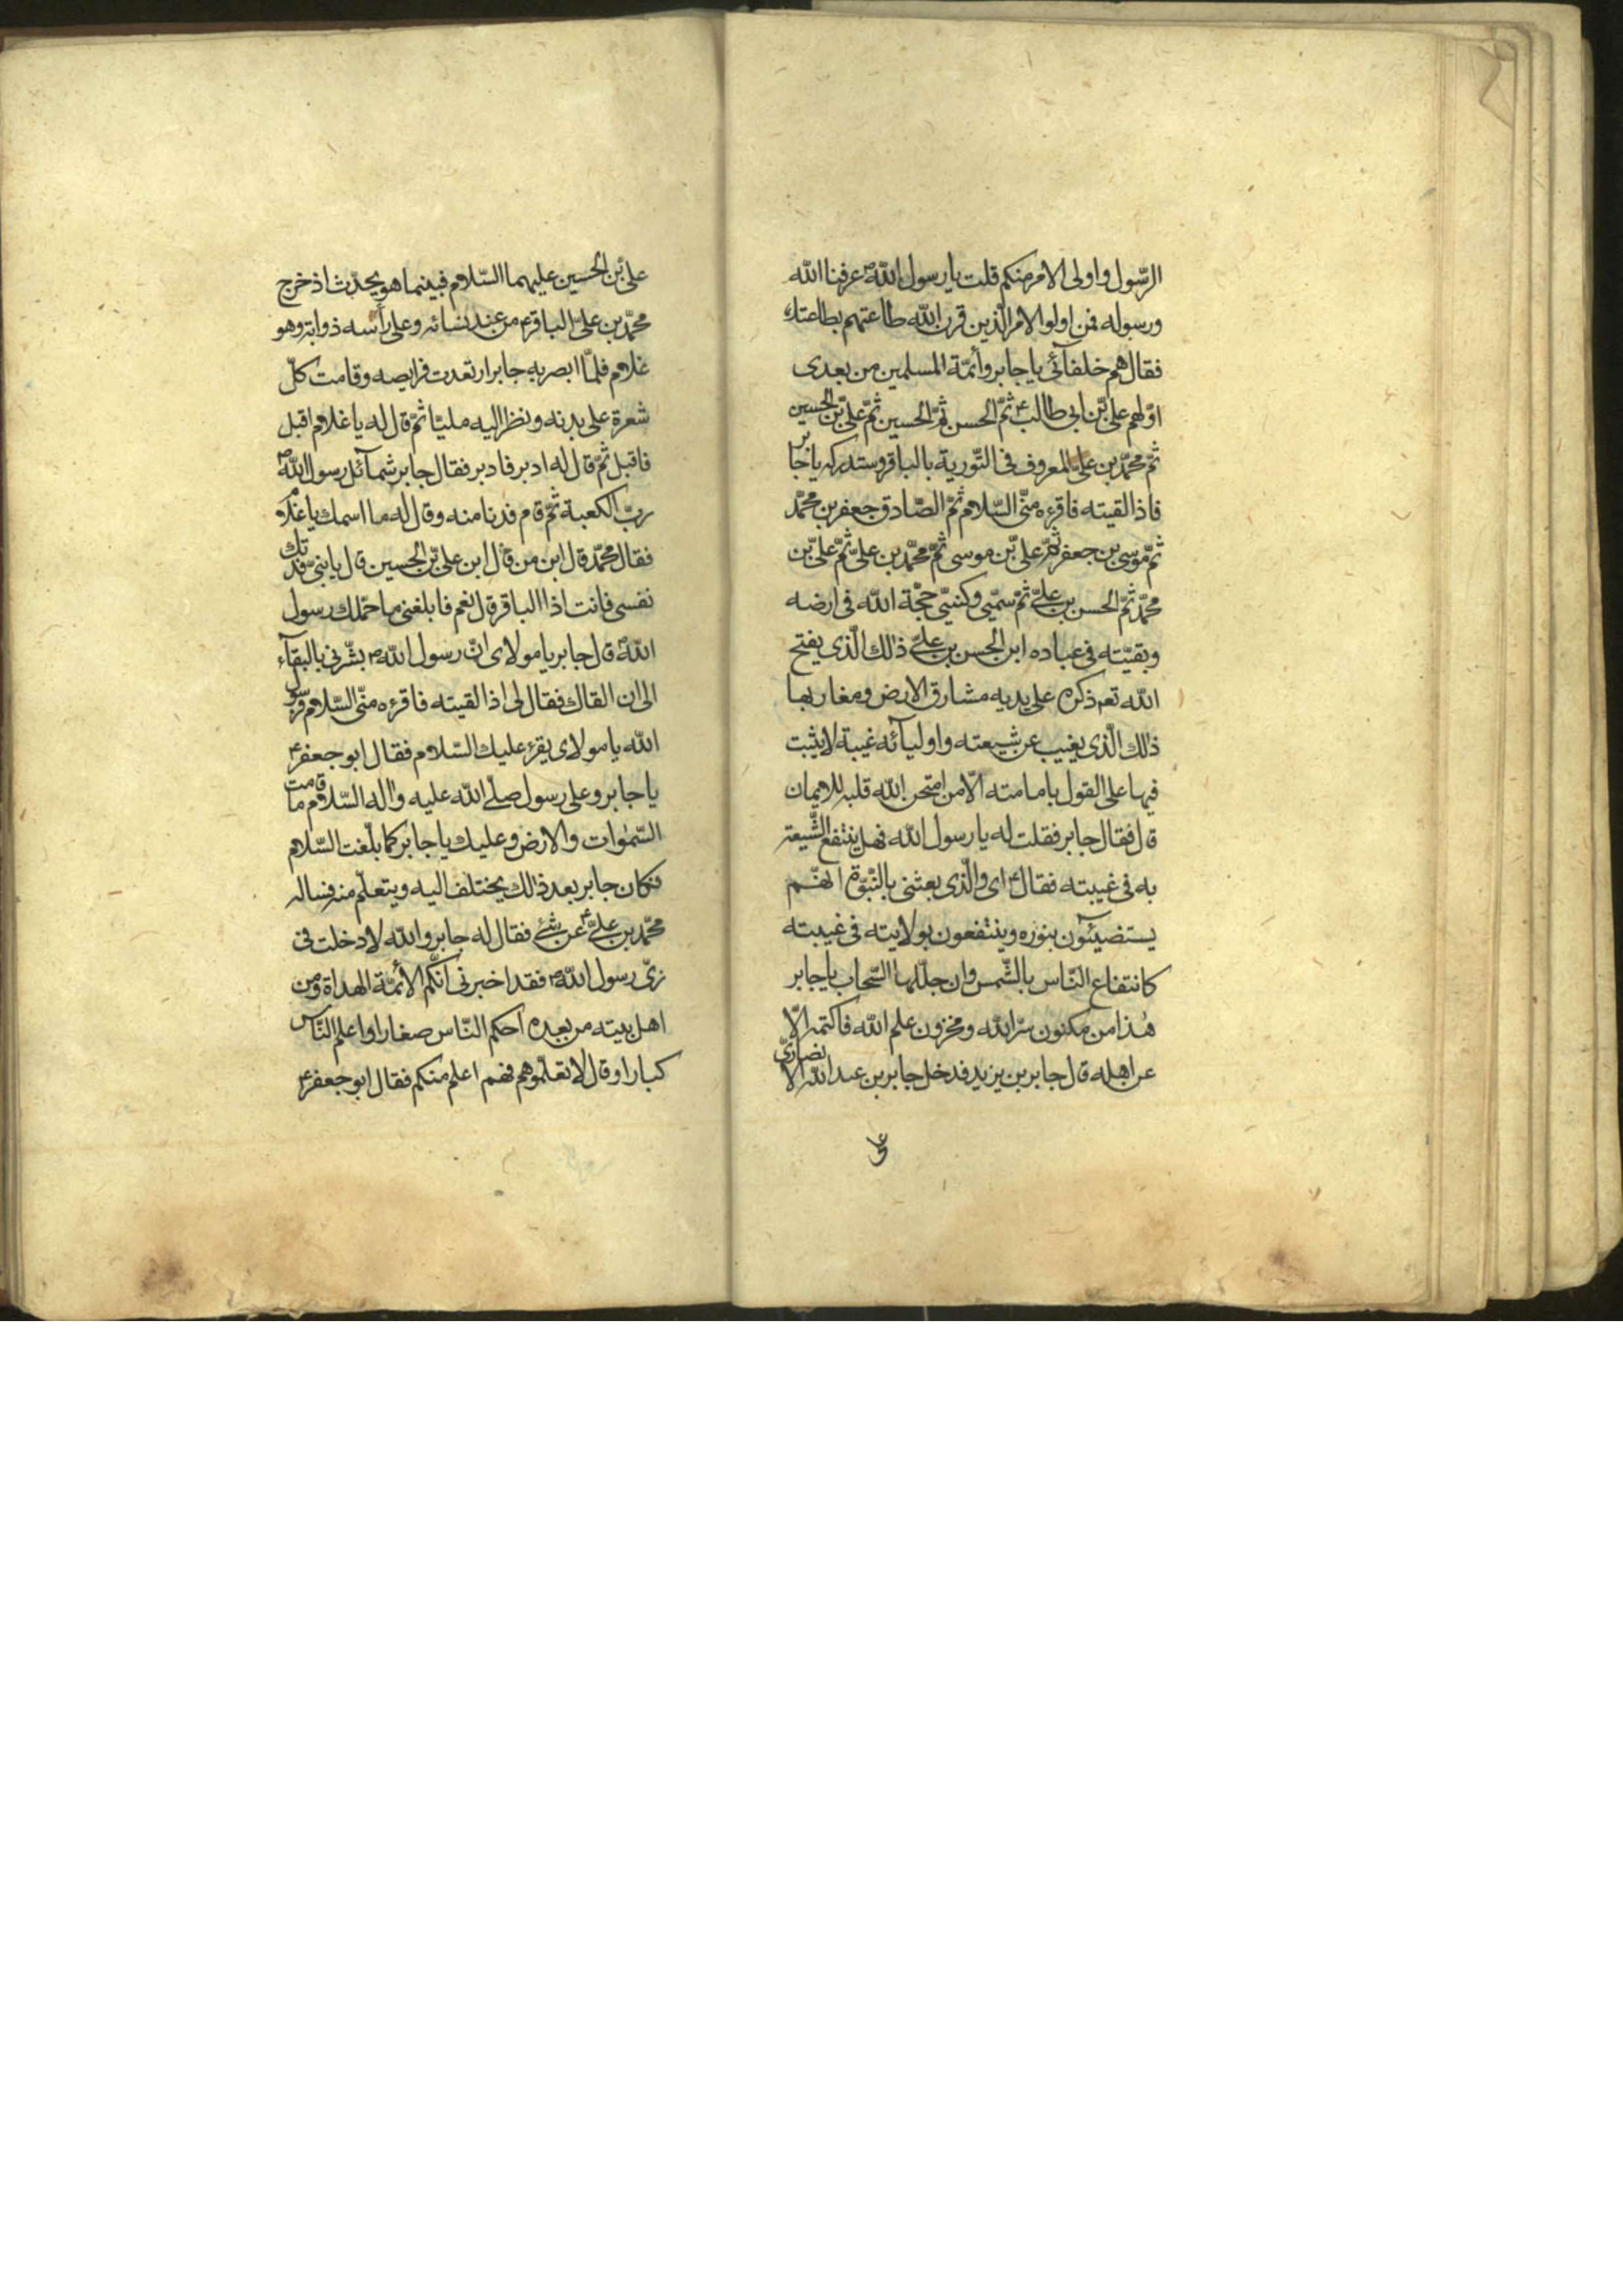 الرّسول واولى الامر منكم قلت يا رسول اللهص عرفنا الله
ورسوله فمن اولو الامر الّذين قرن الله طاعتهم بطاعتك
فقال هم خلفائى يا جابر وأئمّة المسلمين من بعدى
اوّلهم علىّ بن ابى طالبع ثمّ الحسن ثمّ الحسين ثمّ علىّ بن الحسين
ثمّ محمّد بن علىّ المعروف فى التّورية بالباقر وستدركه يا جابر
فاذا لقيته فاقرءه منّى السّلام ثمّ الصّادق جعفر بن محمّد
ثمّ موسى بن جعفر ثمّ علىّ بن موسى ثمّ محمّد بن علىّ ثمّ علىّ بن
محمّد ثمّ الحسن بن علىّ ثمّ سميّى وكنيّى حجّة الله فى ارضه
وبقيّته فى عباده ابن الحسن بن علىّ ذلك الّذى يفتح
الله تع ذكره على يديه مشارق الارض ومغاربها
ذلك الّذى يغيب عن شيعته واوليآئه غيبة لا يثبت
فيها على القول بامامته الّا من امتحن الله قلبه للايمان
قال فقال جابر فقلت له يا رسول الله فهل ينتفع الشّيعة
به فى غيبته فقالع اى والّذى بعثنى بالنّبوّة انّهم
يستضيئون بنوره وينتفعون بولايته فى غيبته
كانتفاع النّاس بالشّمس وان جلّلها السّحاب يا جابر
هذا من مكنون سرّ الله ومخزون علم الله فاكتمه الّا
عن اهله قال جابر بن يزيد فدخل جابر بن عبد الله الانصارىّ
على
علىّ بن الحسين عليهما السّلام فبينما هو يحدّث اذ خرج
محمّد بن علىّ الباقرع من عند نسائه وعلى رأسه ذوابة وهو
غلام فلمّا ابصر به جابر ارتعدت فرايصه وقامت كلّ
شعرة على بدنه ونظر اليه مليّا ثمّ قال له يا غلام اقبل
فاقبل ثمّ قال له ادبر فادبر فقال جابر شمآئل رسول اللهص
ربّ الكعبة ثمّ قام فدنا منه وقال له ما اسمك يا غلام
فقال محمّد قال ابن من قال ابن علىّ بن الحسين قال يا بنىّ فدتك
نفسى فانت اذا الباقر قال نعم فابلغنى ما حمّلك رسول
اللهص قال جابر يا مولاى انّ رسول اللهص بشّرنى بالبقآء
الى ان القاك فقال لى اذا لقيته فاقرءه منّى السّلام فرسول
الله يا مولاى يقرء عليك السّلام فقال ابو جعفرع
يا جابر وعلى رسول صلّى الله عليه واله السّلام ما قامت
السّموات والارض وعليك يا جابر كما بلّغت السّلام
فكان جابر بعد ذلك يختلف اليه ويتعلّم منه فساله
محمّد بن علىّع عن شئ فقال له جابر والله لا دخلت فى
نهى رسول اللهص فقد اخبرنى انّكم الأئمّة الهداة من
اهل بيته من بعده احكم النّاس صغارا واعلم النّاس
كبارا وقال لا تعلّموهم فهم اعلم منكم فقال ابو جعفرع